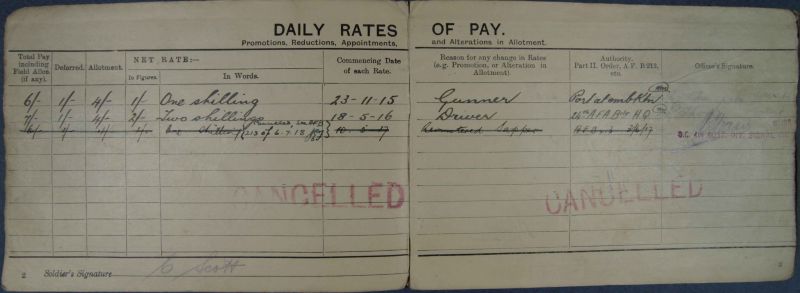 DAILY RATES OF PAY.
Promotions, Reductions, Appointments, and Alterations in Allotment.
Total Pay including Field Allce. (if any). Deferred. Allotment. NET RATE:— In Figures. In Words. Commencing Date of each Rate. Reason for any change in Rates (e.g. Promotion, or Alteration in Allotment) Authority. Part II. Order, A.F. B.213, etc. Officer's Signature
6/- 1/- 4/- 1/- One shilling 23-11-15 Gunner Port at embktn
7/- 1/- 4/- 2/- Two shillings 18-5-16 Driver H Q
6/- 1/- 4/- 1/- One shilling Cancelled 213 of 6.7.18 10-5-17 Remustered Sapper 2/6/17
CANCELLED CANCELLED
2 Soldier's Signature C Scott 3